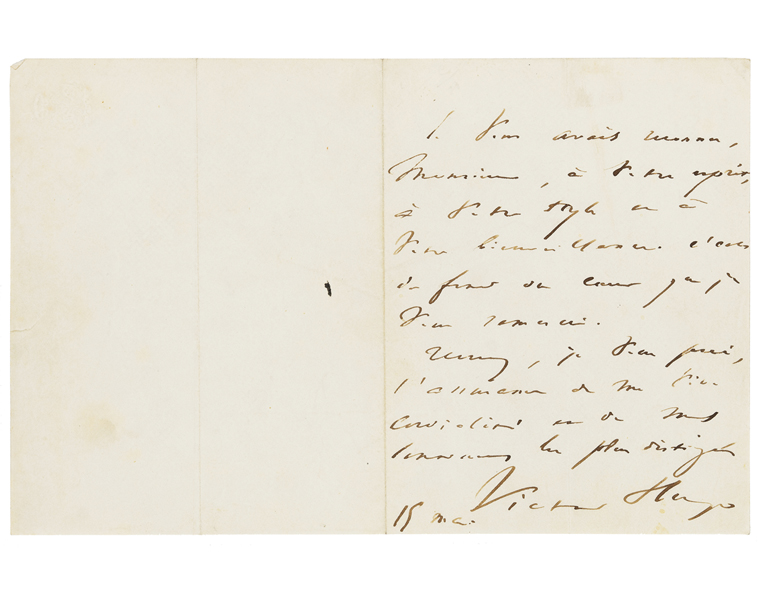 Je vous avais reconnu,
Monsieur, à votre esprit,
à votre style et à
votre bienveillance. c'est
du fond du cœur que je
vous remercie.
Recevez, je vous prie,
l'assurance de ma vive
cordialité et de mes
sentiments les plus distingués
Victor Hugo
15 mai.